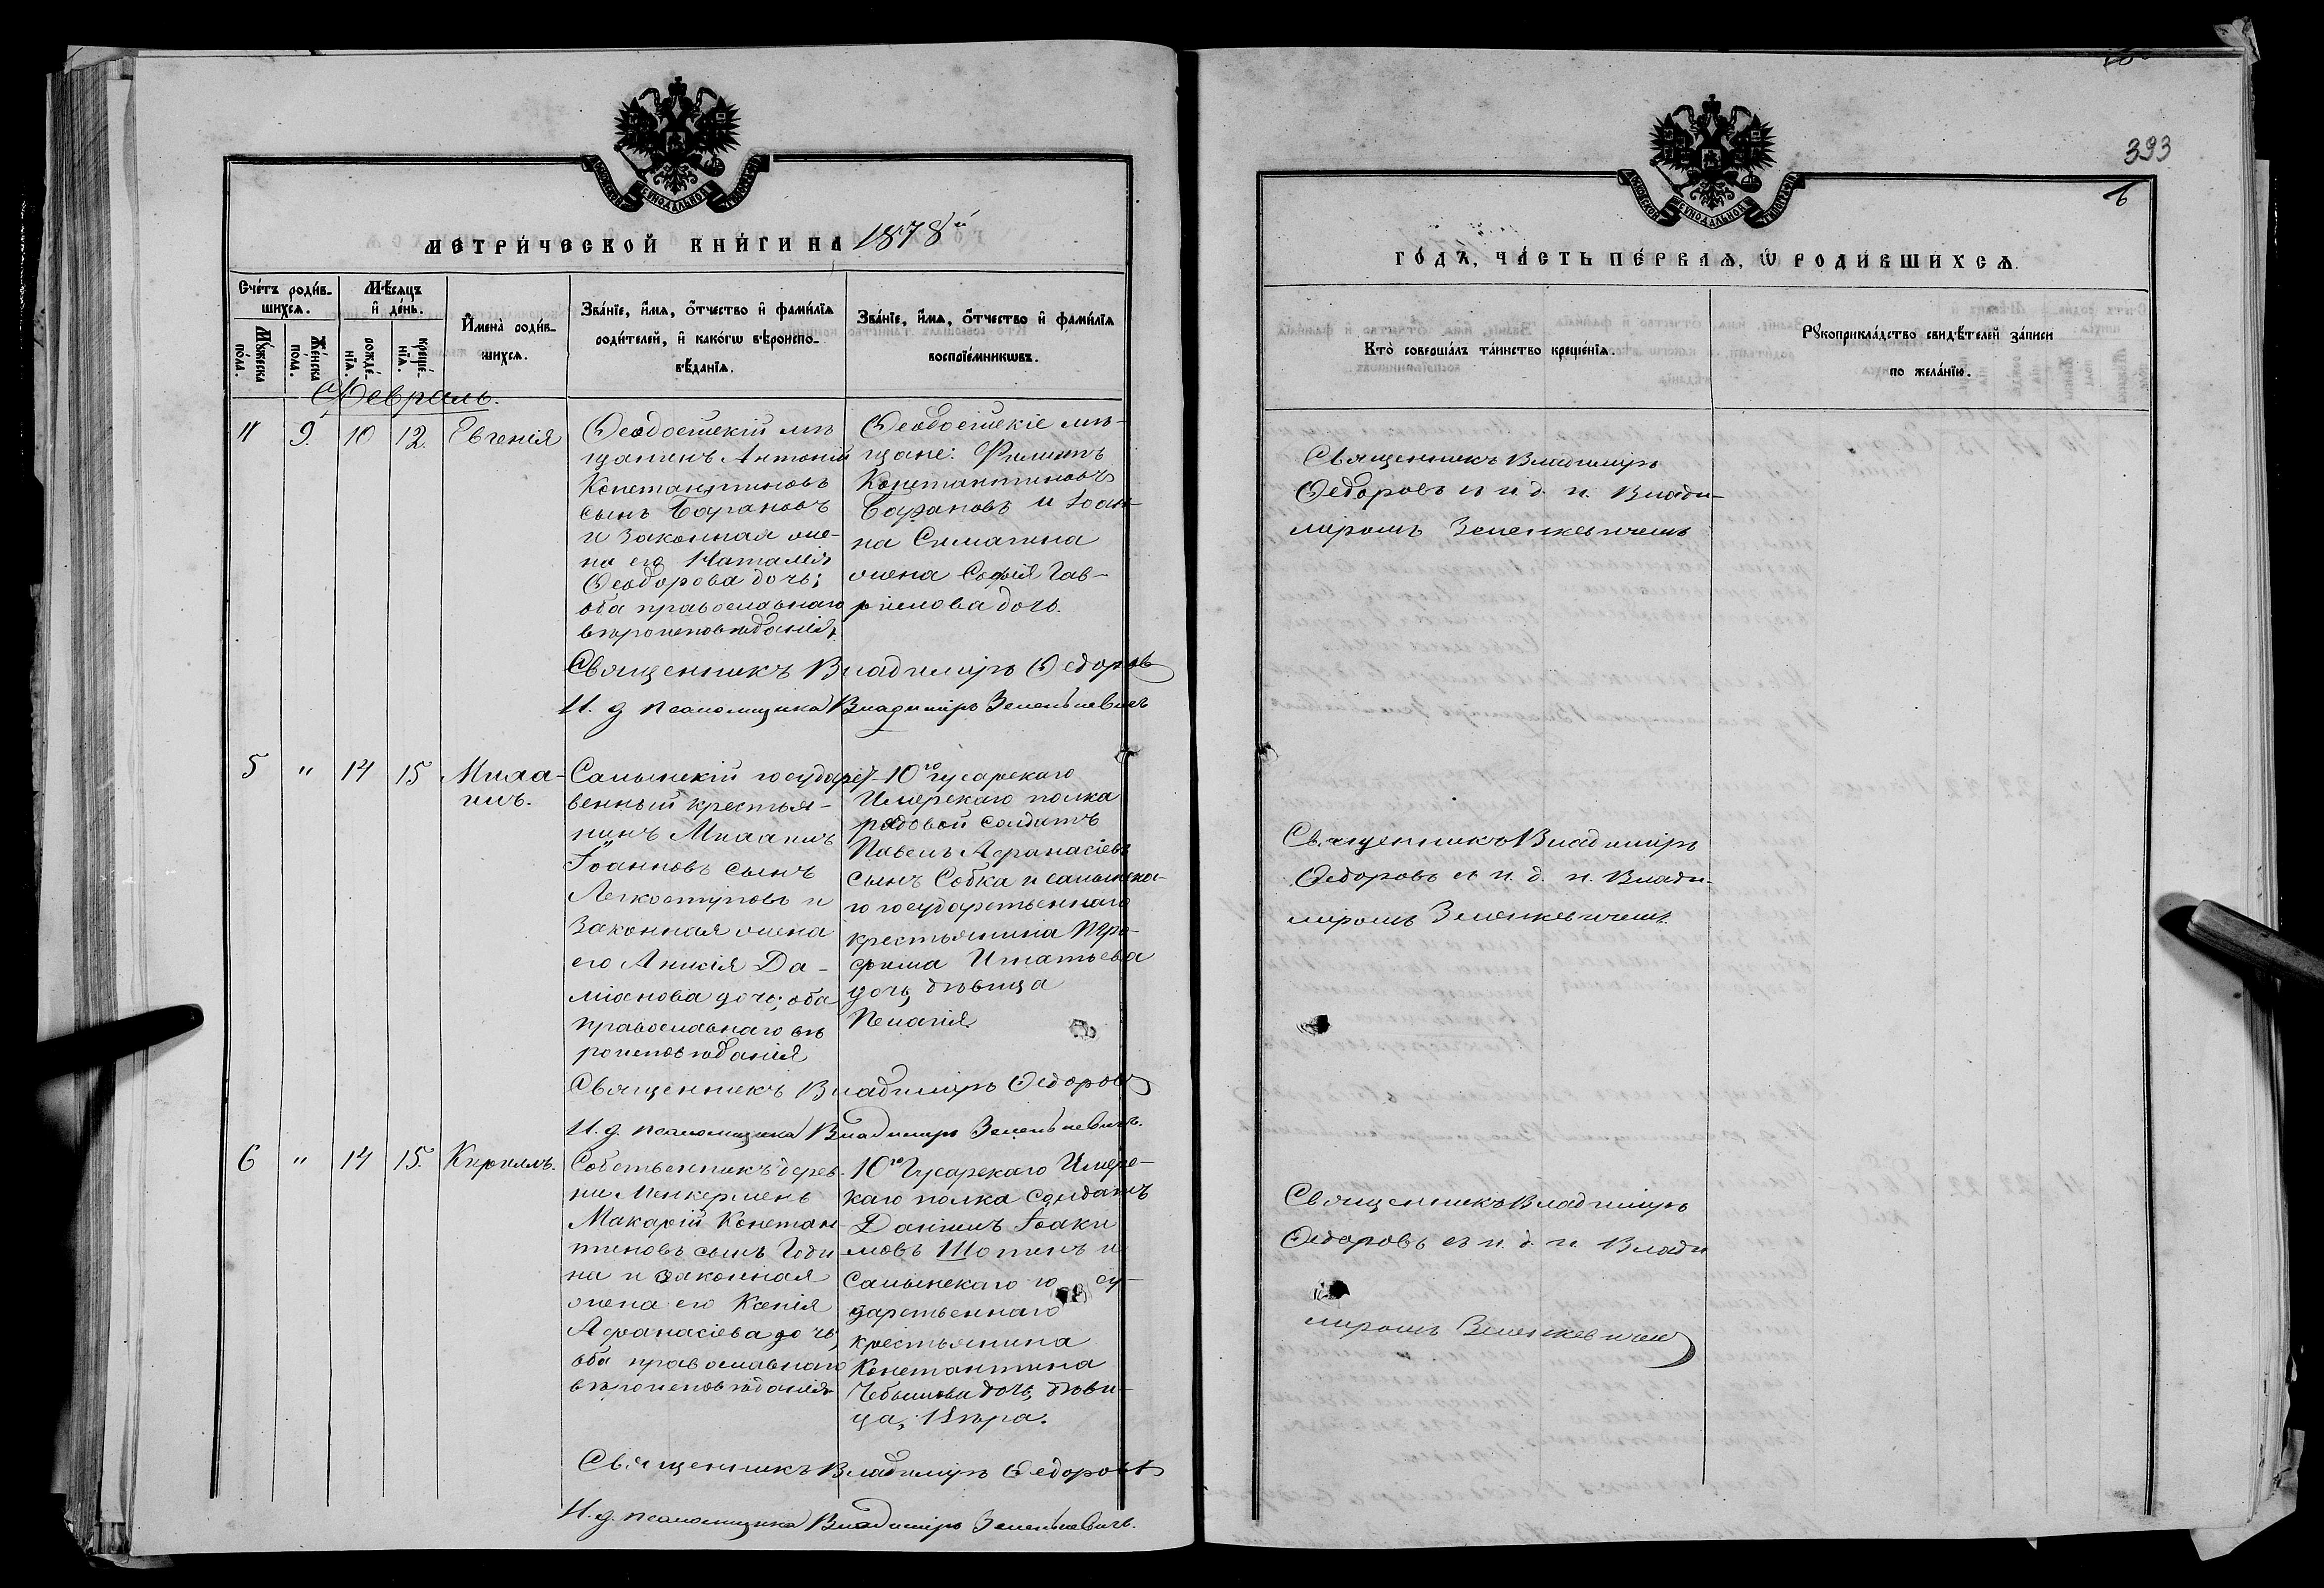 393
6
МОСКОВСКОЙ СѴНОДАЛЬНОЙ ТИПОГРАФІИ
МЕТРИ́ЧЕСКОЙ КНИ́ГИ НА 1878й
Сче́тъ роди́в-
шихсѧ.
Мѣ́сѧцъ
и҆ де́нь.
Мꙋ́жеска
по́ла.
Же́нска
по́ла.
рожде́-
нїѧ.
креще́-
нїѧ.
И҆мена̀ роди́в-
шихсѧ.
Зва́нїе, и҆́мѧ, ѻ҆́тчество и҆ фами́лїѧ
роди́телей, и҆ како́гѡ вѣроиспо-
вѣ́данїѧ.
Зва́нїе, и҆́мѧ, ѻ҆́тчество и҆ фами́лїѧ
воспрїе́мникѡвъ.
Февраль.
" 9. 10 12. Евгенія
Ѳеодосійскій мѣ
щанинъ Антоній
Константиновъ
сынъ Барановъ
и законная же-
на его Наталія
Ѳеодорова дочь;
оба православнаго
вѣроисповѣданія,
Ѳеодосійскіе мѣ-
щане: Филиппъ
Константиновъ
Барановъ и Іоан-
на Симагина
жена Софія Гав-
риилова дочь.
Священникъ Владиміръ Ѳедоровъ
И. д псаломщика Владиміръ Зеленкевичъ
5 " 14 15 Миха-
илъ.
Салынскій государст-
венный крестья-
нинъ Михаилъ
Іоанновъ сынъ
Легкоступовъ и
законная жена
его Анисія Да-
міанова дочь; оба
православнаго вѣ
роисповѣданія
10го гусарскаго
Ингерскаго полка
рядовой солдатъ
Павелъ Афанасіевъ
сынъ Собка и салынска-
го государственнаго
крестьянина Тро-
фима Игнатьева
дочь, дѣвица
Пелагія.
Священникъ Владиміръ Ѳедоровъ
И. д. псаломщика Владиміръ Зеленкевичъ.
6 " 14 15. Кириллъ.
Собственникъ дерев-
ни Менкермень
Макарій Констан-
тиновъ сынъ Годи-
на и законная
жена его Ксенія
Афанасіева дочь,
оба православнаго
вѣроисповѣданія
10го Гусарскаго Ингерс-
каго полка солдатъ
Даніилъ Іоаки
мовъ и
Салынскаго го су-
дарственнаго
крестьянина
Константина
дочь, дѣви-
ца, Вѣра.
Священникъ Владиміръ Ѳедоровъ
И. д. псаломщика Владиміръ Зеленкевичъ.
МОСКОВСКОЙ СѴНОДАЛЬНОЙ ТИПОГРАФІИ
ГО́ДЪ, ЧА́СТЬ ПЕ́РВАѦ, Ѡ҆ РОДИ́ВШИХСѦ.
Кто̀ соверша́лъ та́инство креще́нїѧ.
Рꙋкоприкла́дство свидѣ́телей за́писи
по жела́нїю.
Священникъ Владиміръ
Ѳедоровъ съ и. д. п. Влади-
міромъ Зеленкевичемъ
Священникъ Владиміръ
Ѳедоровъ съ и. д. п. Влади-
міромъ Зеленкевичемъ.
Священникъ Владиміръ
Ѳедоровъ съ и. д. п. Влади
міромъ Зеленкевичем